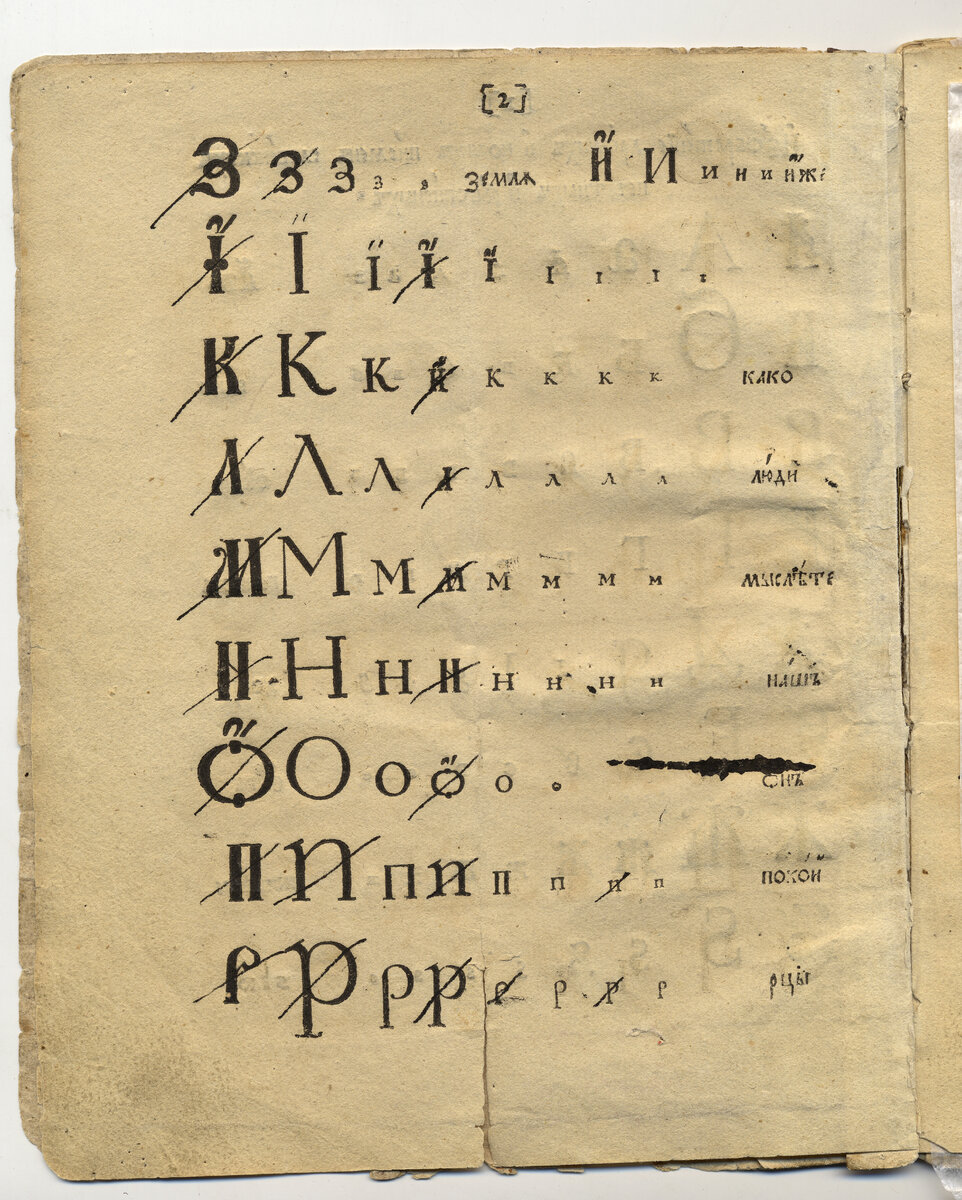 [2]
З З З з з землѧ И҆́ И и н и и҆́же
І҆́ Ї ї І҆́ ї і і і і
К К к к к к к к како
Л Л л л л л л л лю́ди
М М м м м м м м мыслѣ́те
Н Н н н н н н н на́шъ
О҆́ О о о҆́ о о о҆нъ
П П п п п п п п поко́й
Р Р р р р р р р рцы̀